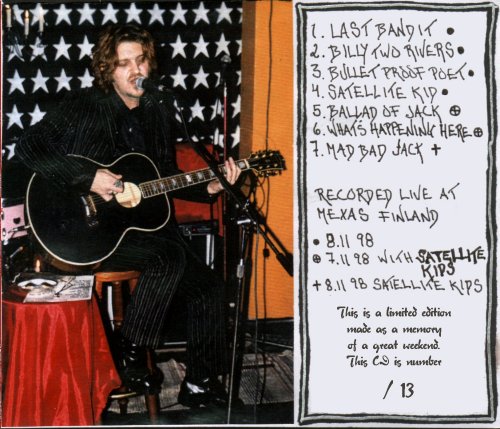 1. LAST BANDIT •
2. BILLY TWO RIVERS •
3. BULLET PROOF POET •
4. SATELLITE KID •
5. BALLAD OF JACK ⊕
6. WHATS HAPPENING HERE ⊕
7. MAD BAD JACK +
RECORDED LIVE AT
MEXAS FINLAND
• 8.11 98
⊕ 7.11 98 WITH SATELLITE
KIDS
+ 8.11 98 SATELLITE KIDS
This is a limited edition
made as a memory
of a great weekend.
This CD is number
/ 13